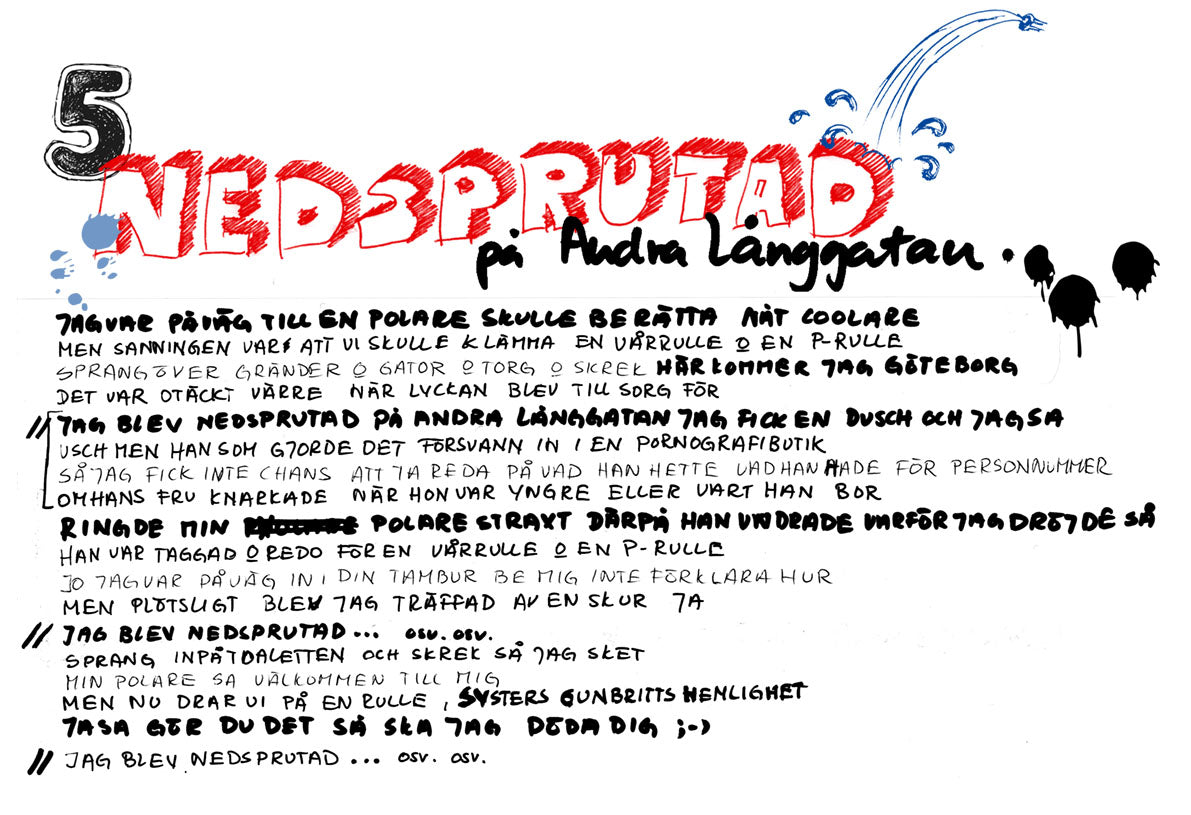 5
NEDSPRUTAD
på Andra Långgatan.
JAG VAR PÅ VÄG TILL EN POLARE SKULLE BERÄTTA NÅT COOLARE
MEN SANNINGEN VAR ATT VI SKULLE KLÄMMA EN VÅRRULLE O EN P-RULLE
SPRANG ÖVER GRÄNDER O GATOR O TORG O SKREK HÄR KOMMER JAG GÖTEBORG
DET VAR OTÄCKT VÄRRE NÄR LYCKAN BLEV TILL SORG FÖR
// JAG BLEV NEDSPRUTAD PÅ ANDRA LÅNGGATAN JAG FICK EN DUSCH OCH JAG SA
USCH MEN HAN SOM GJORDE DET FÖRSVANN IN I EN PORNOGRAFIBUTIK
SÅ JAG FICK INTE CHANS ATT TA REDA PÅ VAD HAN HETTE VAD HAN HADE FÖR PERSONNUMMER
OM HANS FRU KNARKADE NÄR HON VAR YNGRE ELLER VART HAN BOR
RINGDE MIN POLARE STRAXT DÄRPÅ HAN UNDRADE VARFÖR JAG DRÖJDE SÅ
HAN VAR TAGGAD O REDO FÖR EN VÅRRULLE O EN P-RULLE
JO JAG VAR PÅ VÄG IN I DIN TAMBUR BE MIG INTE FÖRKLARA HUR
MEN PLÖTSLIGT BLEV JAG TRÄFFAD AV EN SKUR JA
// JAG BLEV NEDSPRUTAD... osv. osv.
SPRANG IN PÅ TOALETTEN OCH SKREK SÅ JAG SKET
MIN POLARE SA VÄLKOMMEN TILL MIG
MEN NU DRAR VI PÅ EN RULLE, SYSTERS GUNBRITTS HEMLIGHET
JA SA GÖR DU DET SÅ SKA JAG DÖDA DIG ;-)
// JAG BLEV NEDSPRUTAD... osv. osv.